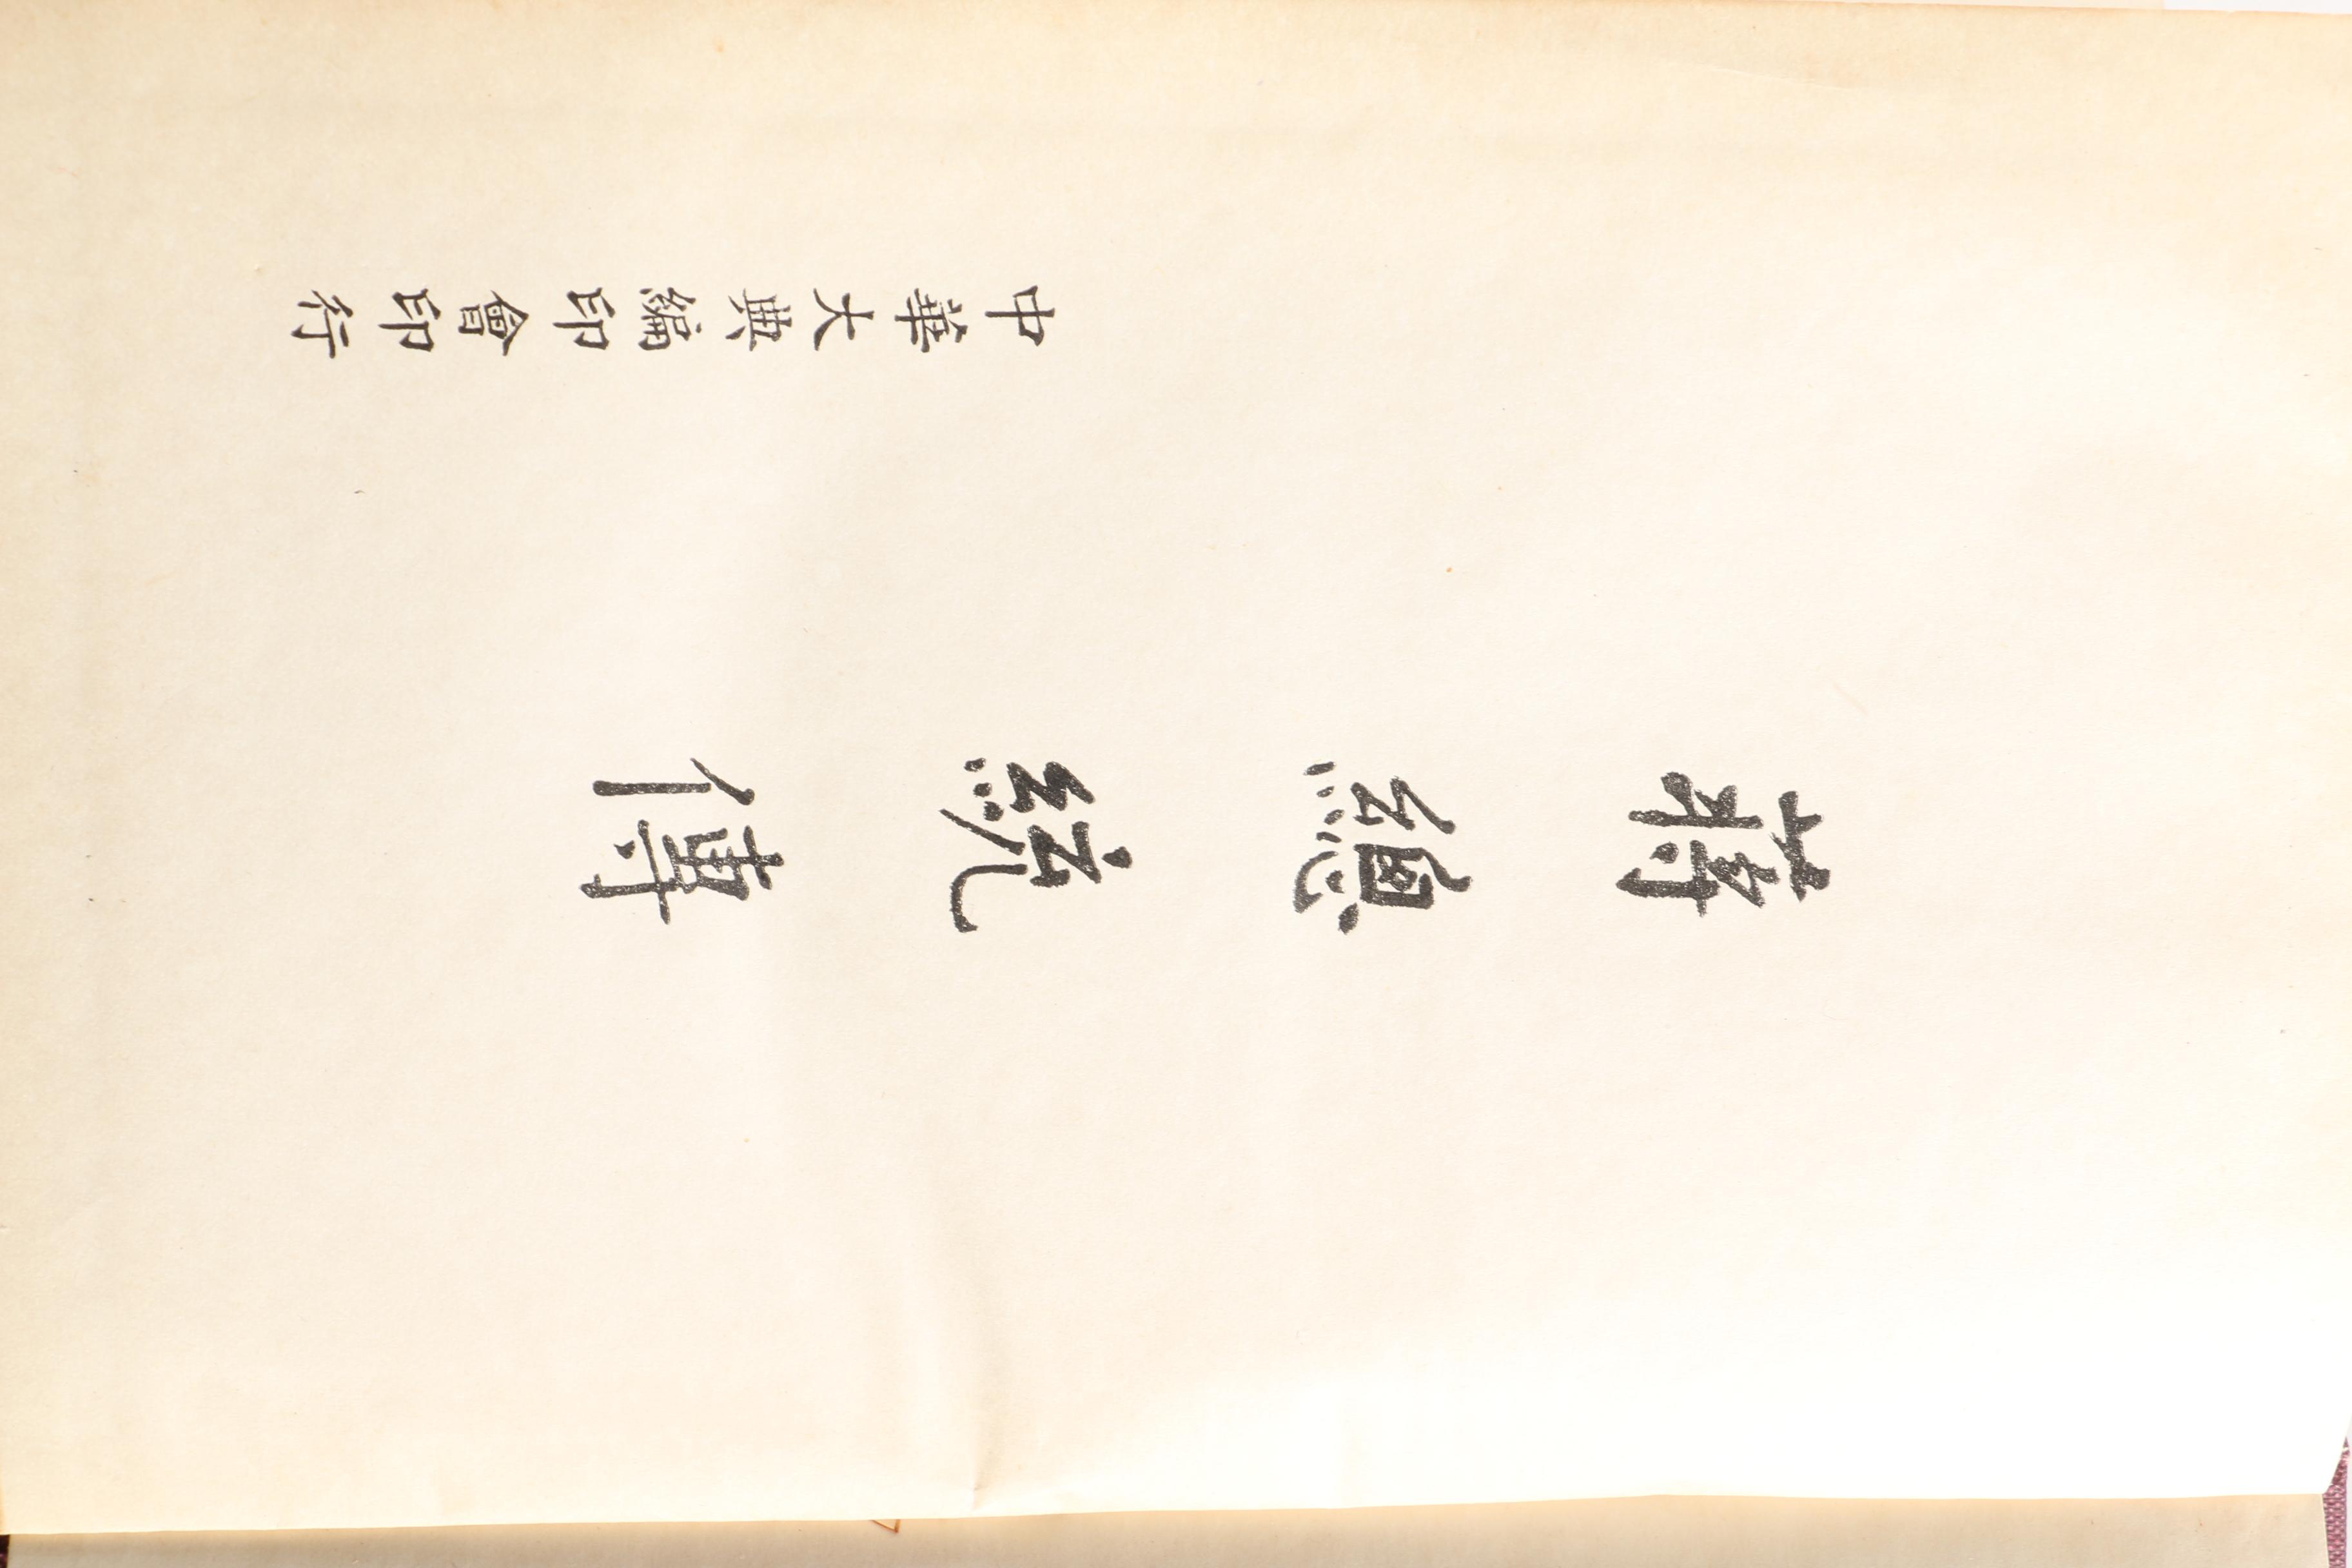 蔣總統傳
中華大典編印會印行